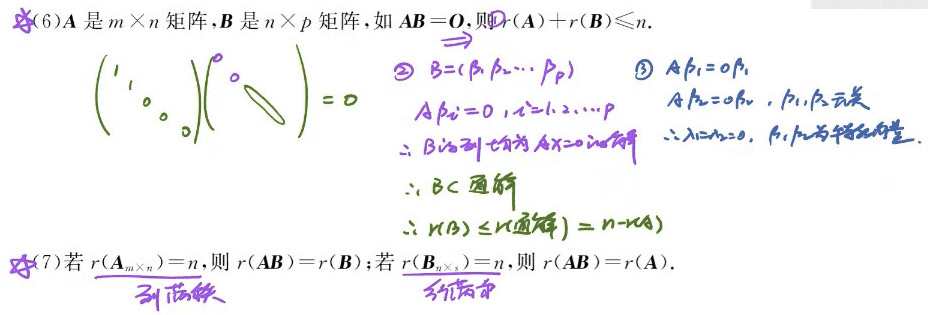 ☆(6)A 是 m×n 矩阵,B 是 n×p 矩阵,如 AB=O,则 r(A)+r(B)≤n.
①
⇒
(1 1 0 0 0)(0 0) = 0
② B=(β₁ β₂ ⋯ βp)
Aβi=0, i=1.2.⋯p
∴ B的列均为AX=0的解
∴ B⊂通解
∴ r(B)≤r(通解)=n-r(A)
③ Aβ₁=0β₁
Aβ₂=0β₂, β₁,β₂无关
∴λ₁=λ₂=0, β₁,β₂为特征向量.
☆(7)若 r(Aₘₓₙ)=n,则 r(AB)=r(B);若 r(Bₙₓₛ)=n,则 r(AB)=r(A).
列满秩
行满秩